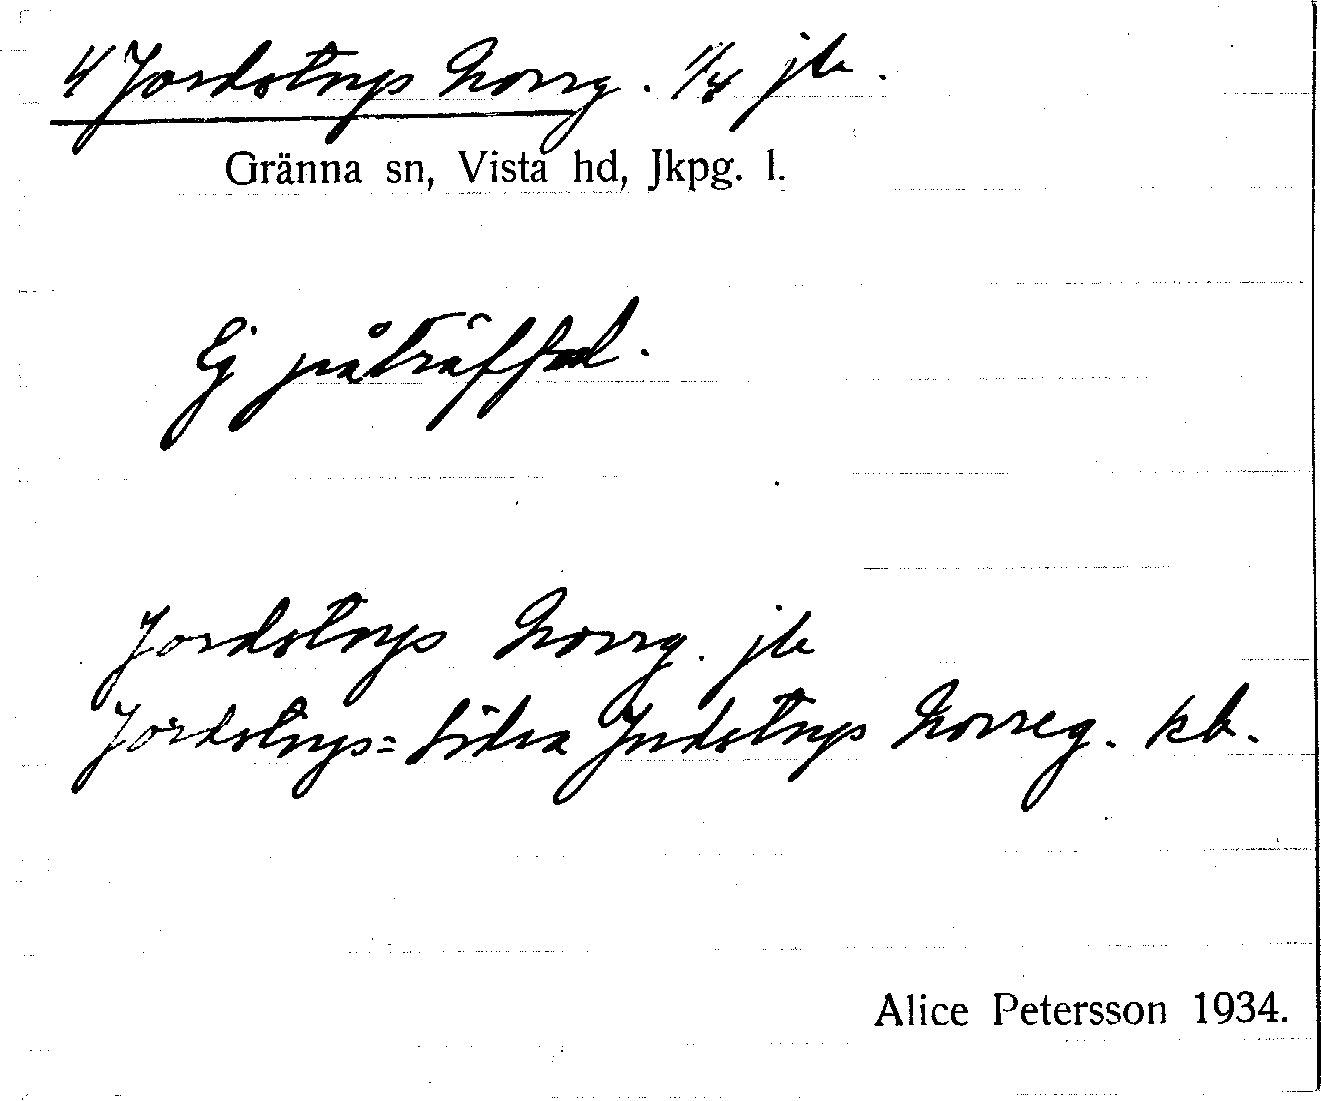 4 Jordstorps Norrg. 1/4 jb.
Gränna sn, Vista hd, Jkpg. l.
Ej påträffad.
Jordstorps Norrg. jb
Jordstorps= Södra Judstorps Norreg. kb.
Alice Petersson 1934.